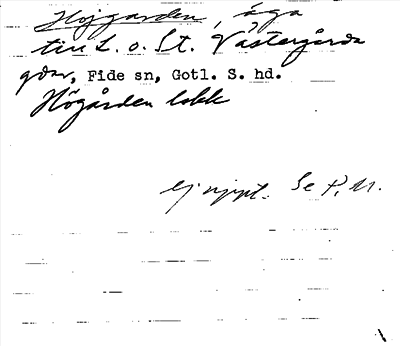 Höjgården, äga
till L. o. St. Västergårda
gdar, Fide sn, Gotl. S. hd.
Högården lokk
ej uppt. Se P.M.